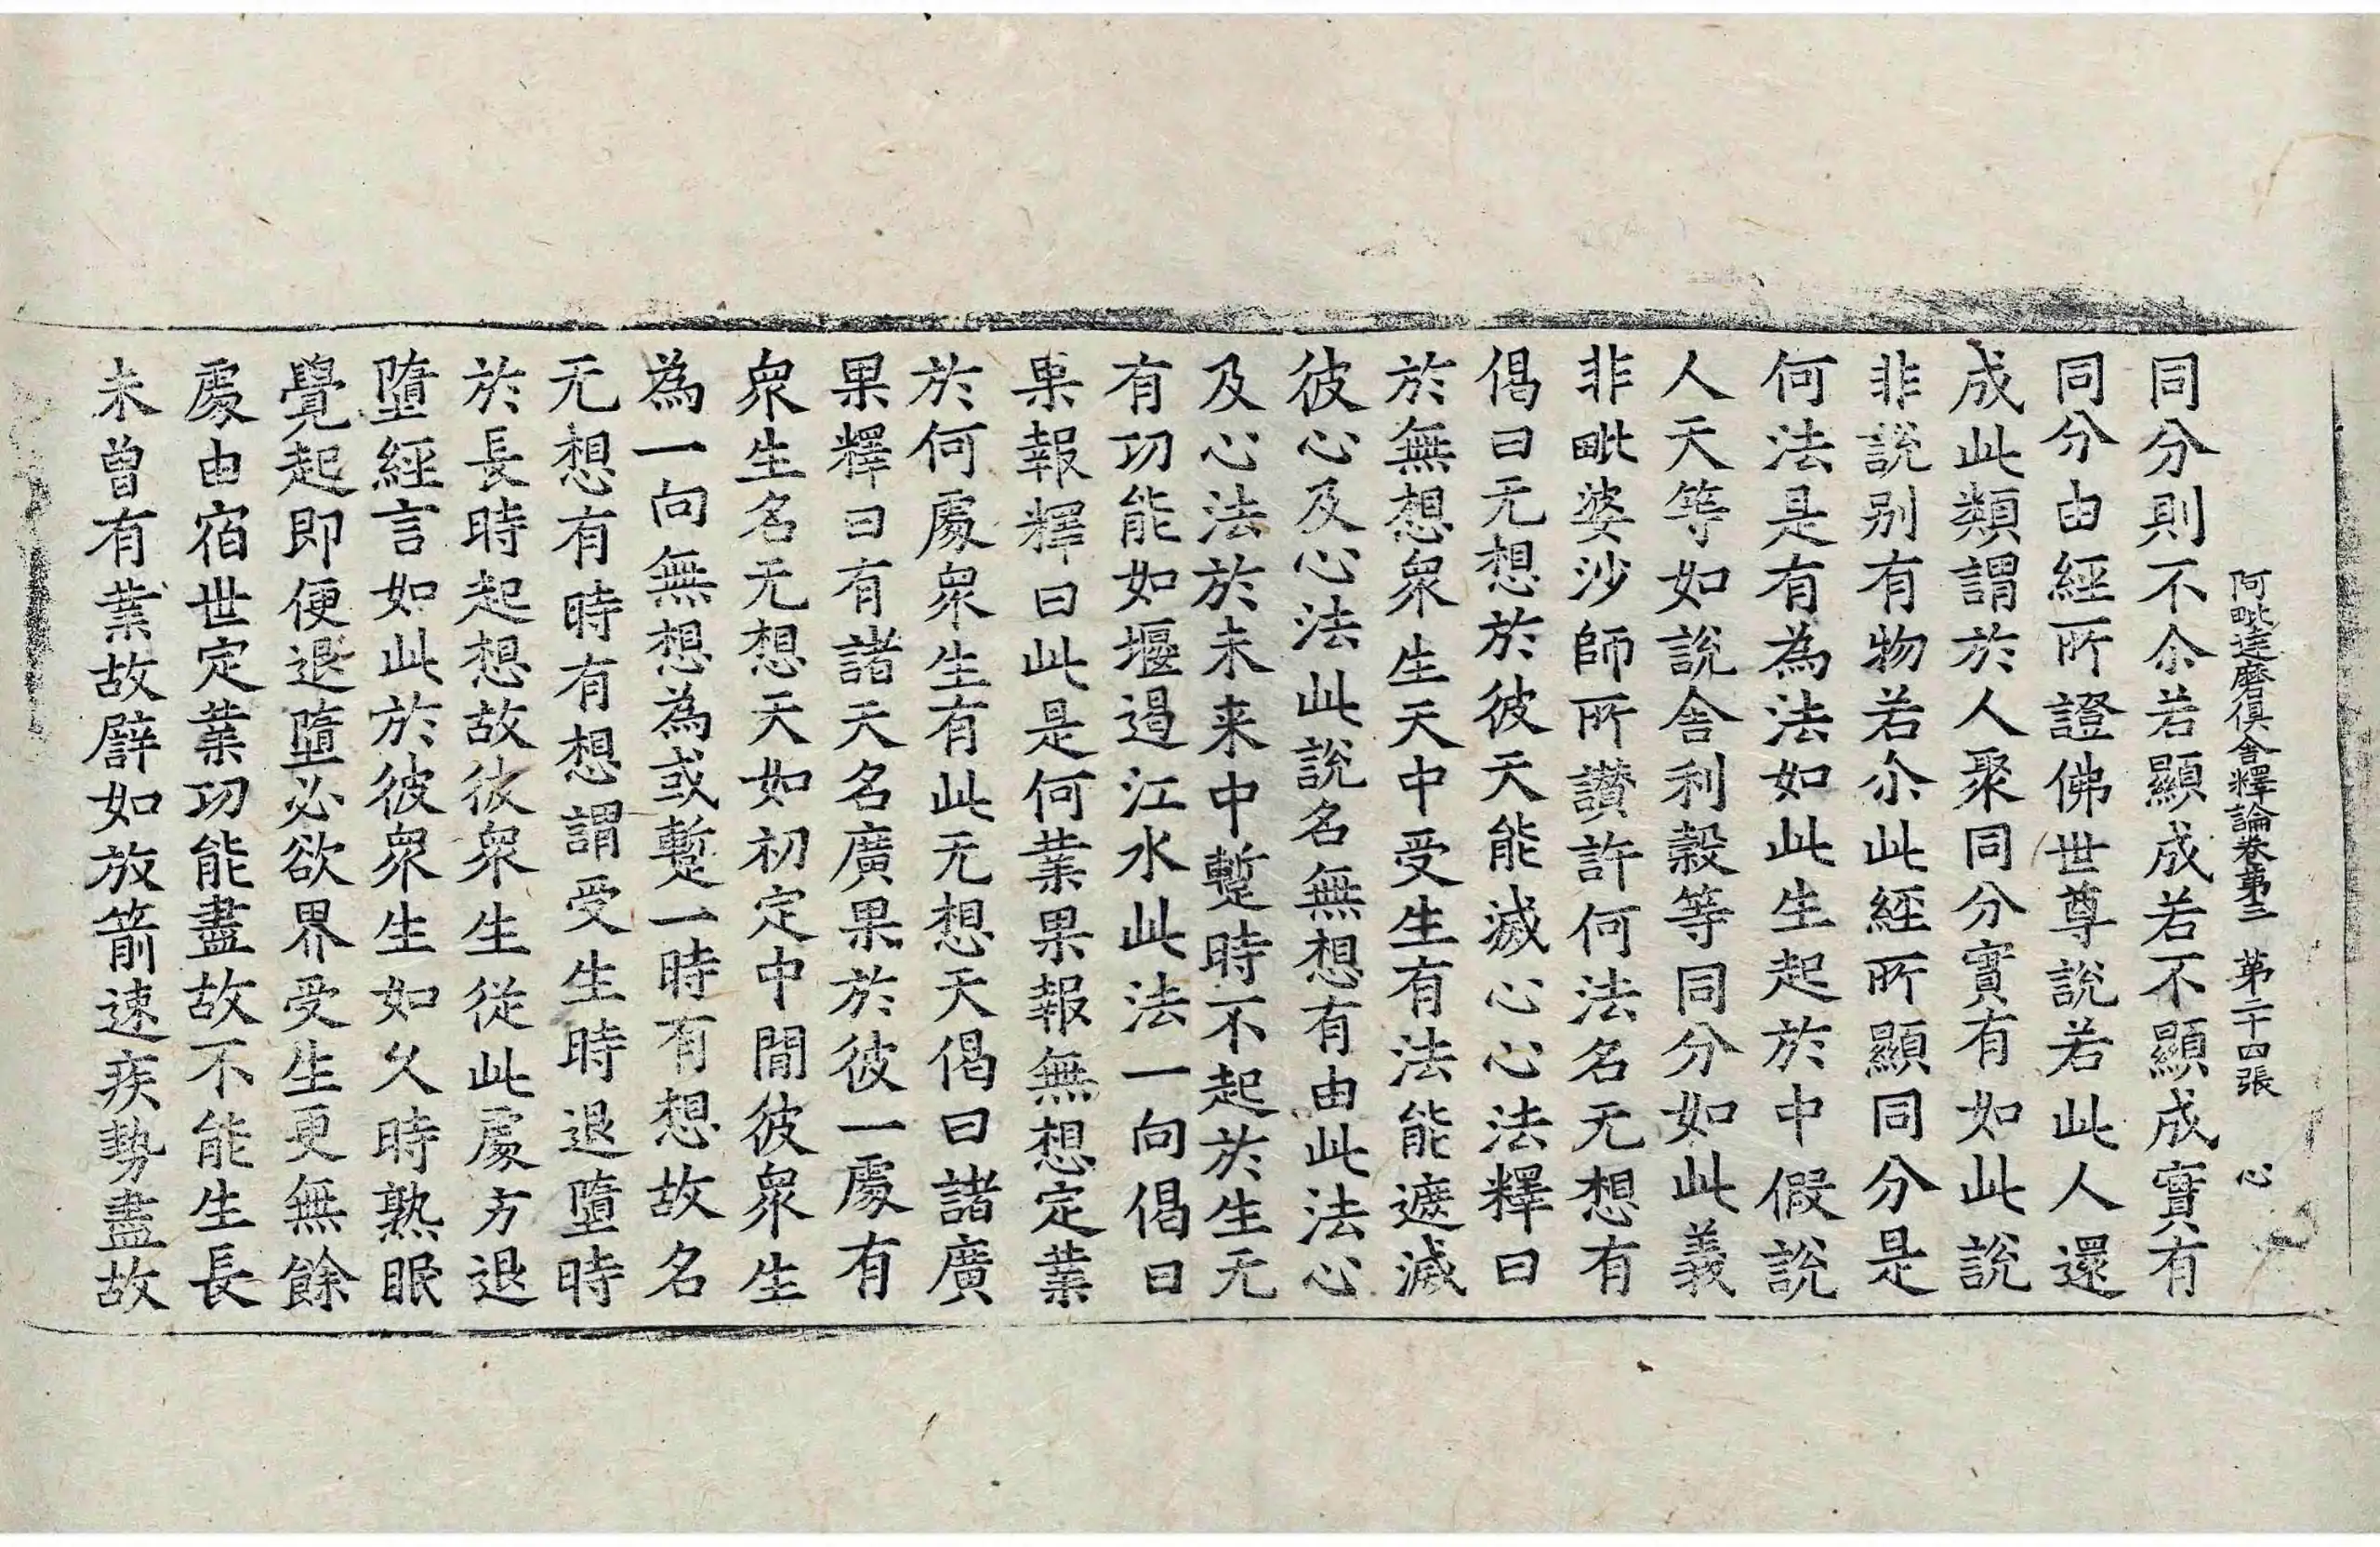 阿毗達磨俱舍釋論卷第三 第二十四張 心
同分則不尒若顯成若不顯成實有
同分由經所證佛世尊說若此人還
成此類謂於人聚同分實有如此說
非說別有物若尒此經所顯同分是
何法是有為法如此生起於中假說
人天等如說舍利穀等同分如此義
非毗婆沙師所讚許何法名无想有
偈曰无想於彼天能滅心心法釋曰
於無想衆生天中受生有法能遮滅
彼心及心法此說名無想有由此法心
及心法於未来中蹔時不起於生无
有功能如堰遏江水此法一向偈曰
果報釋曰此是何業果報無想定業
於何處衆生有此无想天偈曰諸廣
果釋曰有諸天名廣果於彼一處有
衆生名无想天如初定中間彼衆生
為一向無想為或蹔一時有想故名
无想有時有想謂受生時退墮時
於長時起想故彼衆生從此處方退
墮經言如此於彼衆生如久時熟眠
覺起即便退墮必欲界受生更無餘
處由宿世定業功能盡故不能生長
未曾有業故譬如放箭速疾勢盡故